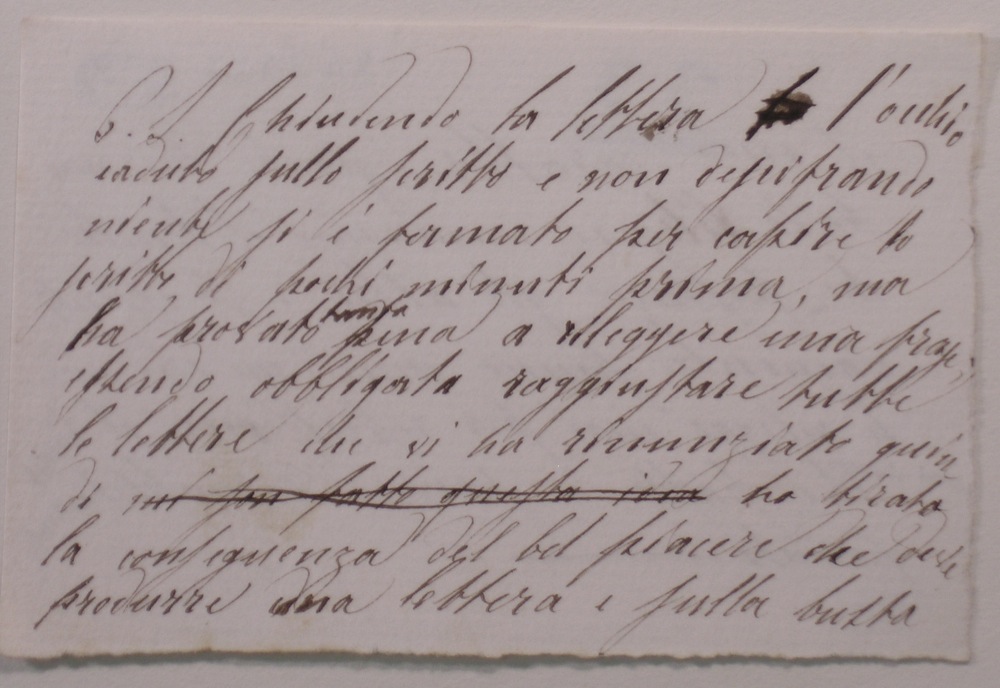 P. S. Chiudendo la lettera l'occhio
caduto sullo scritto e non decifrando
niente si è fermato per capire lo
scritto di pochi minuti prima, ma
ha provato tanta pena a rileggere una frase,
essendo obbligata raggiustare tutte
le lettere che vi ha rinunziato quin
di mi son fatto questa idea ho tirato
la conseguenza del bel piacere che deve
produrre una lettera e sulla busta